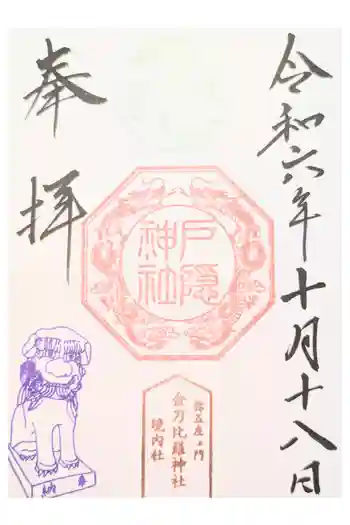 令和六年十月十八日
奉拝
戸隠
神社
虎ノ門
金刀比羅神社
境内社
奉
納